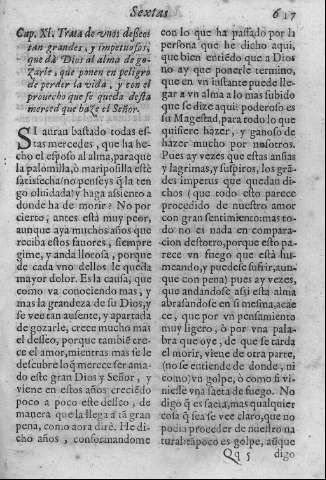 Sextas
617
Cap. XI. Trata de vnos desseos
tan grandes, y impetuosos,
que dà Dios al alma de go-
zarle, que ponen en peligro
de perder la vida, y con el
prouecho que se queda desta
merced que haze el Señor.
SI auran bastado todas es-
tas mercedes, que ha he-
cho el esposo al alma, paraque
la palomilla, ò mariposilla estè
satisfecha (no penseys q̃ la ten
go oluidada) y haga assiento a
donde ha de morir? No por
cierto, antes està muy peor,
aunque aya muchos años que
reciba estos fauores, siempre
gime, y anda llorosa, porque
de cada vno dellos le queda
mayor dolor. Es la causa, que
como va conociendo mas, y
mas la grandeza de su Dios, y
se vee tan ausente, y apartada
de gozarle, crece mucho mas
el desseo, porque tambiẽ cre-
ce el amor, mientras mas se le
descubre lo q̃ merece ser ama
do este gran Dios y Señor, y
viene en estos años creciẽdo
poco a poco este desseo, de
manera que la llega à tã gran
pena, como aora dirè. He di-
cho años, conformandome
con lo que ha passado por la
persona que he dicho aqui,
que bien entiẽdo que a Dios
no ay que ponerle termino,
que en vn instante puede lle-
gar a vn alma a lo mas subido
que se dize aqui: poderoso es
su Magestad, para todo lo que
quisiere hazer, y ganoso de
hazer mucho por nosotros.
Pues ay vezes que estas ansias
y lagrimas, y suspiros, los grã-
des impetus que quedan di-
chos (que todo esto parece
procedido de nuestro amor
con gran sentimiento: mas to-
do no es nada en compara-
cion destotro, porque esto pa-
rece vn fuego que està hu-
meando, y puedese sufrir, aun-
que con pena) pues ay vezes,
que andandose assi esta alma
abrasandose en si mesma, acae
ce, que por vn pensamiento
muy ligero, ò por vna pala-
bra que oye, de que se tarda
el morir, viene de otra parte,
(no se entiende de donde, ni
como) vn golpe, ò como si vi-
niesse vna saeta de fuego. No
digo q̃ es saeta, mas qualquier
cosa q̃ sea se vee claro, que no
podia proceder de nuestro na
tural: tãpoco es golpe, aũque
Qq 5
digo